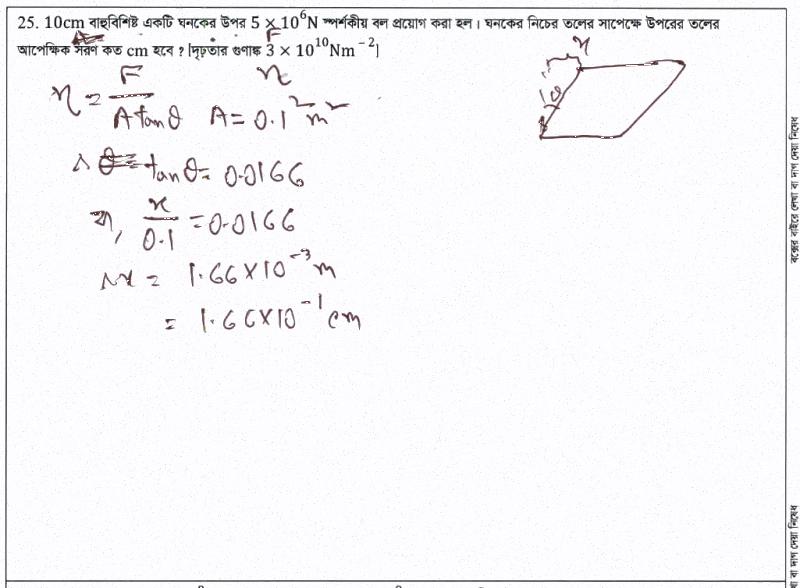 25. 10cm বাহুবিশিষ্ট একটি ঘনকের উপর 5 × 10⁶N স্পর্শকীয় বল প্রয়োগ করা হল। ঘনকের নিচের তলের সাপেক্ষে উপরের তলের
আপেক্ষিক সরণ কত cm হবে ? [দৃঢ়তার গুণাঙ্ক 3 × 10¹⁰Nm⁻²]
F
n
x
θ
n = F / A tanθ A = 0.1² m²
tanθ = 0.0166
বা, x / 0.1 = 0.0166
x = 1.66 × 10⁻³ m
= 1.66 × 10⁻¹ cm
বক্সের বাইরে লেখা বা দাগ দেয়া নিষেধ
খা বা দাগ দেয়া নিষেধ